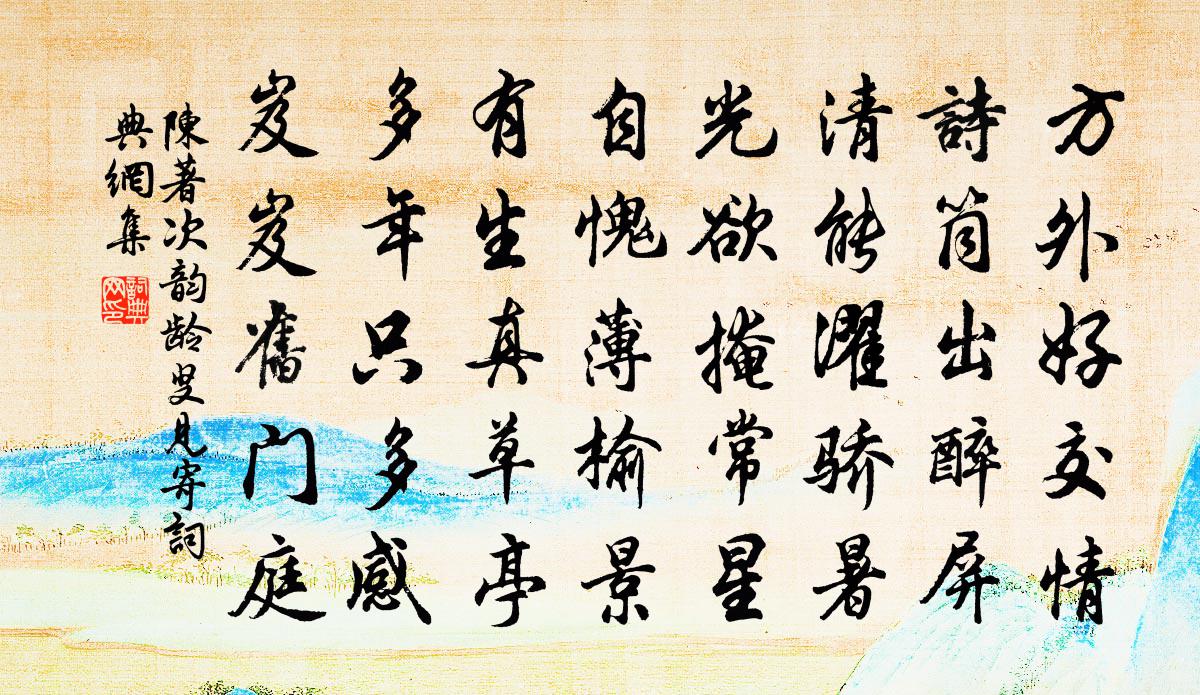 方外好交情
詩筒出醉屏
清能濯骄暑
光欲掩常星
自愧薄榆景
有生真草亭
多年只多感
岌岌舊门庭
陳著次韵龄叟見寄詞
典網集
詞典
网印